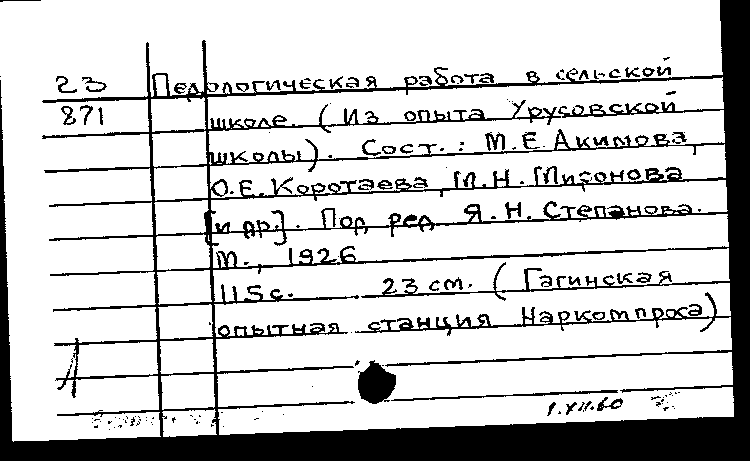 23 Педологическая работа в сельской
871 школе. (Из опыта Урусовской
школы). Сост.: М.Е. Акимова,
О.Е. Коротаева, М.Н. Миронова
[и др.]. Под ред. Я.Н. Степанова.
М., 1926
115с. 23 см. (Гагинская
опытная станция Наркомпроса)
1.XII.60